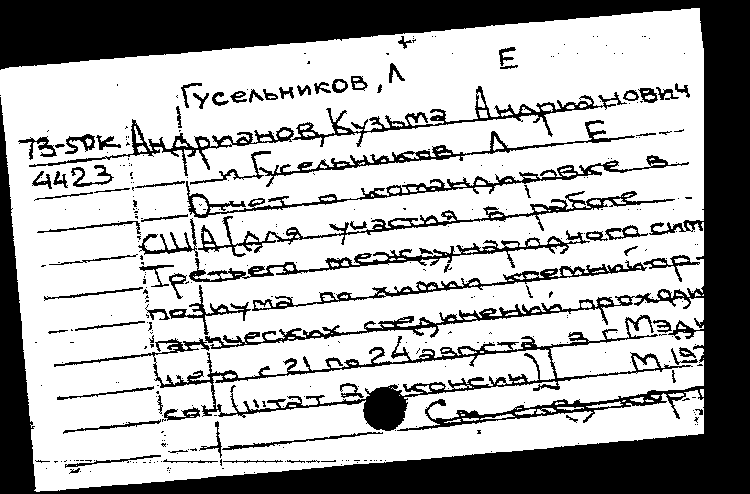 +
Гусельников, Л Е
73-5DK Андрианов, Кузьма Андрианович
4423 и Гусельников, Л Е
Отчет о командировке в
США [для участия в работе
Третьего международного сим
позиума по химии кремнийор-
ганических соединений, проходи
шего с 21 по 24 августа в г. Мэди
сон (штат Висконсин)] М. 197
См. след. карт